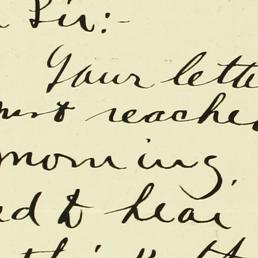 Sir:-
Your lette
must reache
morning,
ed to hear